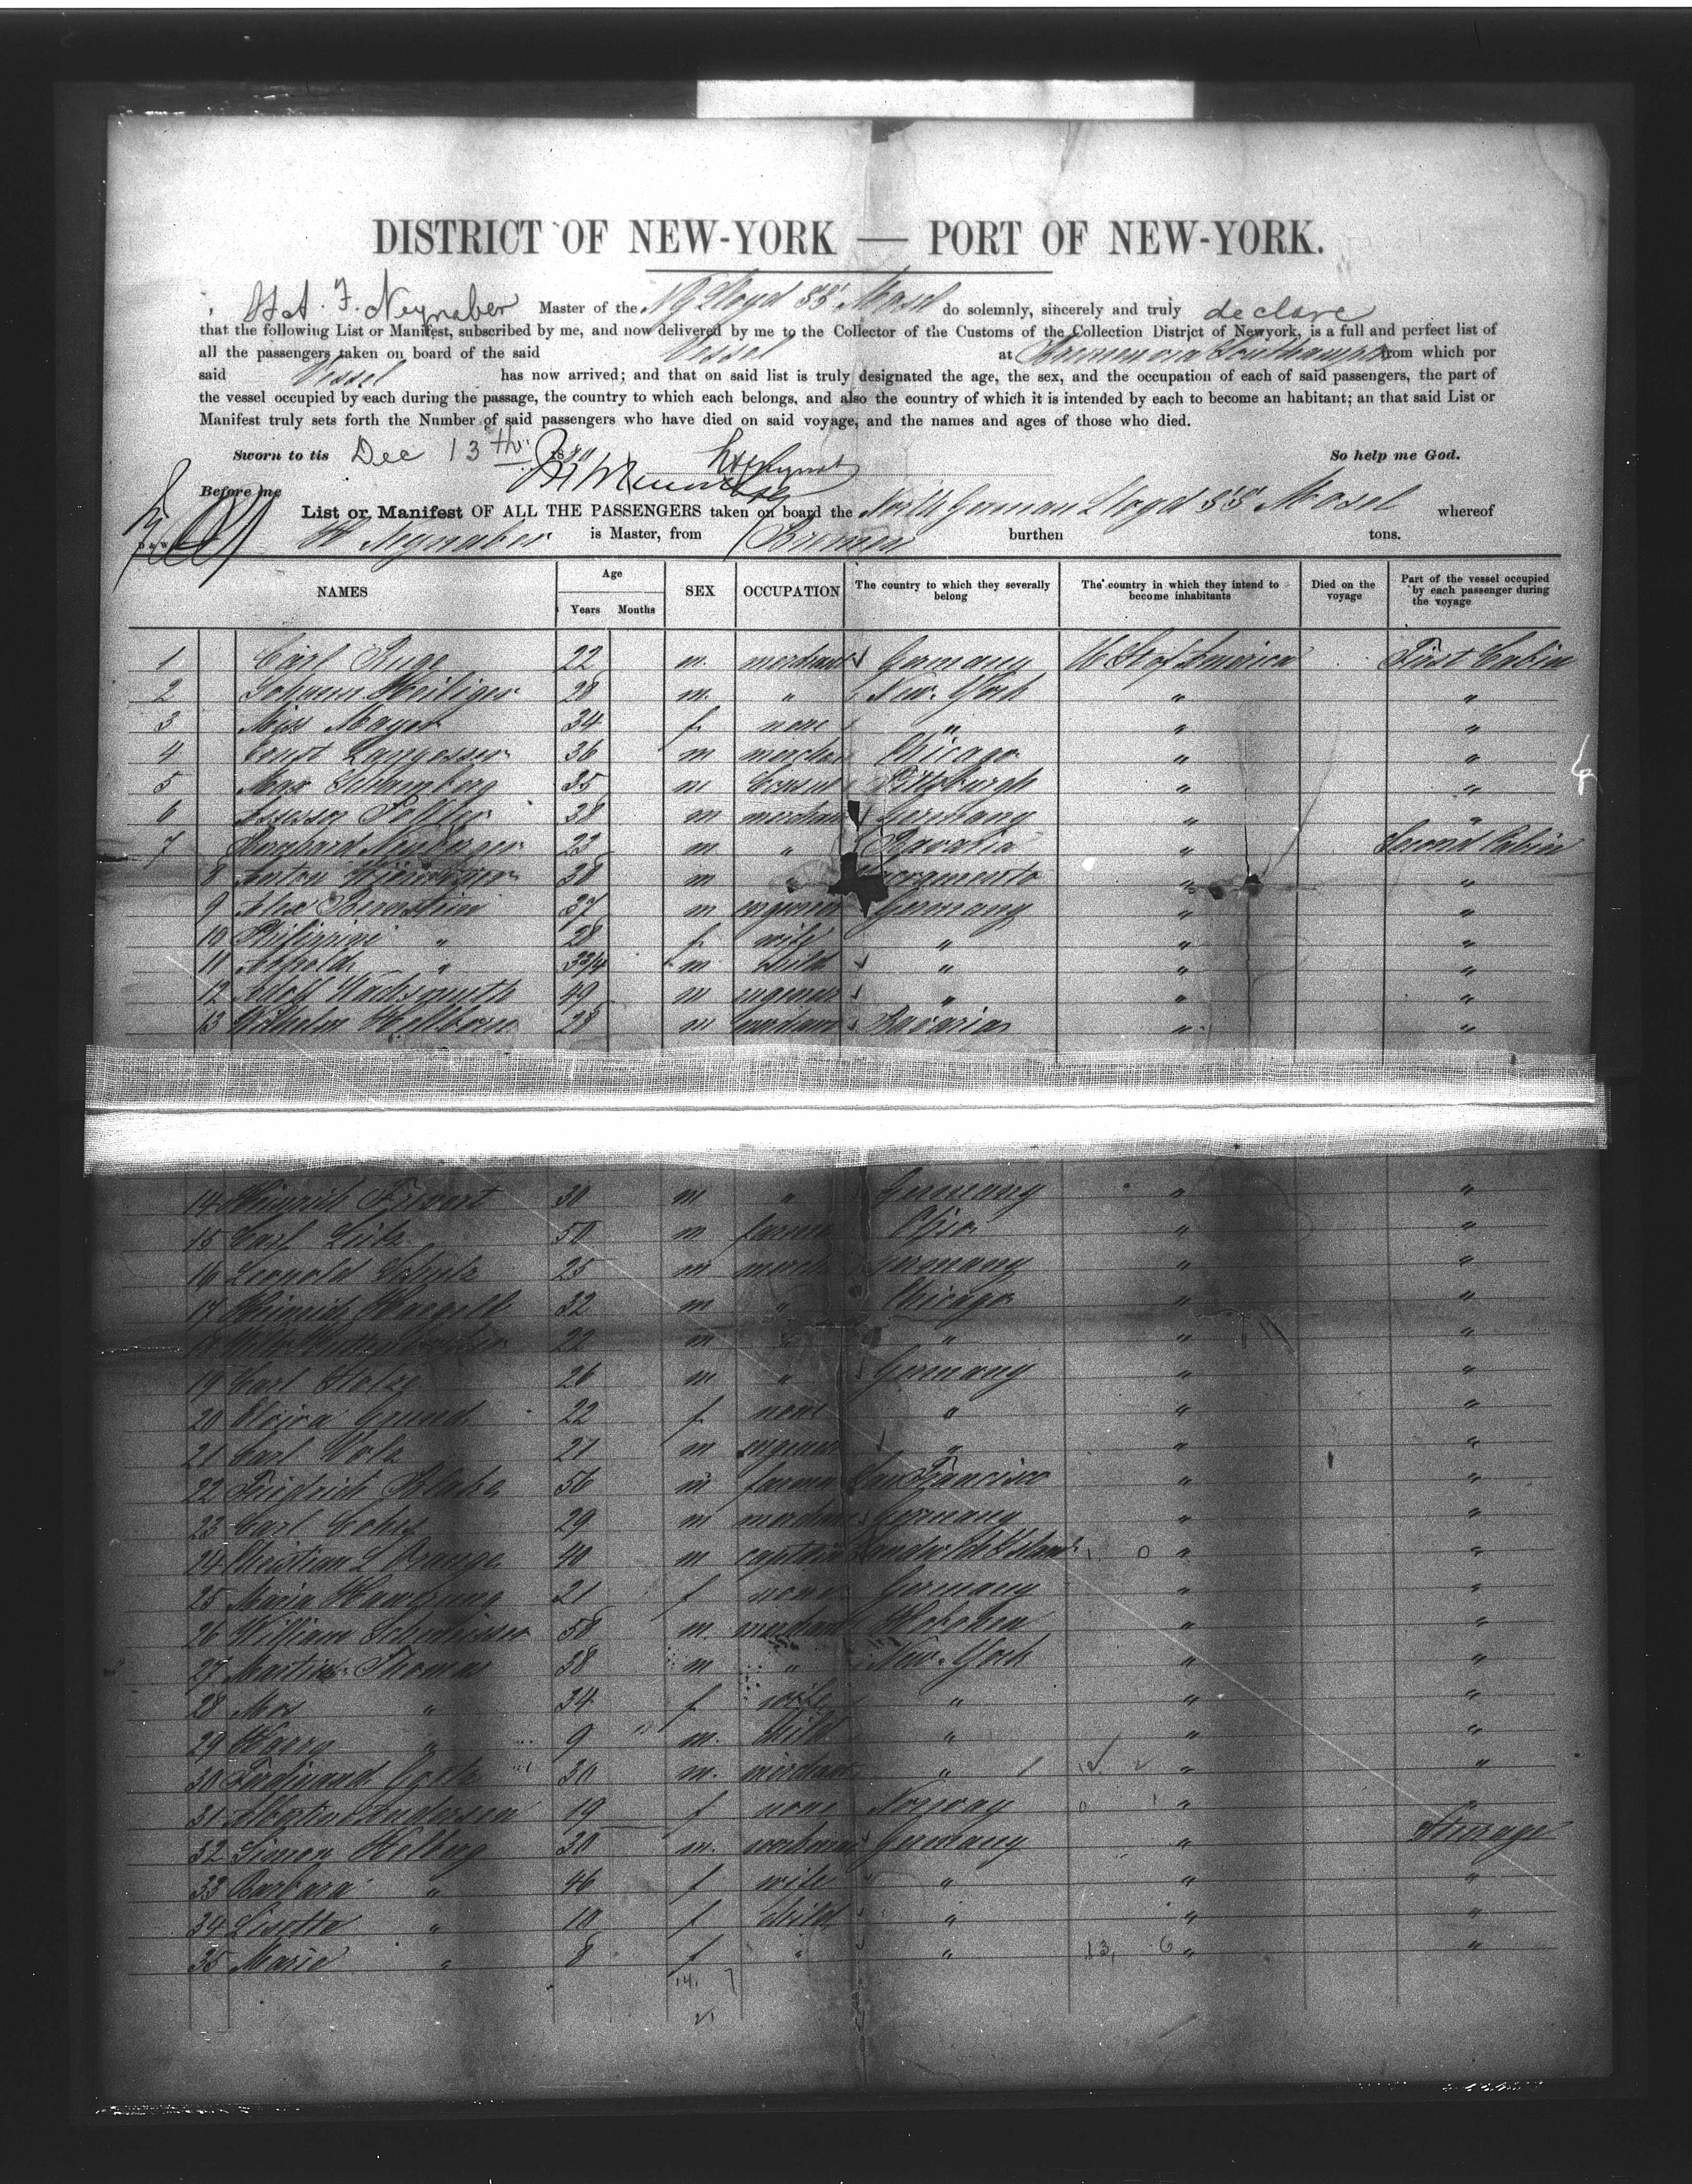 DISTRICT OF NEW-YORK — PORT OF NEW-YORK.
F. Neynaber Master of the N G Lloyd SS Mosel do solemnly, sincerely and truly declare
that the following List or Manifest, subscribed by me, and now delivered by me to the Collector of the Customs of the Collection District of Newyork, is a full and perfect list of
all the passengers taken on board of the said Vessel at Bremen via Southampton from which por
said Vessel has now arrived; and that on said list is truly designated the age, the sex, and the occupation of each of said passengers, the part of
the vessel occupied by each during the passage, the country to which each belongs, and also the country of which it is intended by each to become an habitant; an that said List or
Manifest truly sets forth the Number of said passengers who have died on said voyage, and the names and ages of those who died.
Sworn to tis Dec 13th So help me God.
Before me
List or Manifest OF ALL THE PASSENGERS taken on board the North German Lloyd SS Mosel whereof
H Neynaber is Master, from Bremen burthen tons.
NAMES Age Years Months SEX OCCUPATION The country to which they severally belong The country in which they intend to become inhabitants Died on the voyage Part of the vessel occupied by each passenger during the voyage
1 Carl Ruge 22 m. merchant Germany U St of America First Cabin
2 Johann Heiliger 28 m. " New-York " "
3 Miss Mayer 34 f. none " " "
4 Ernst 36 m merchan Chicago " "
5 Max Schamberg 35 m Consul Pittsburgh " "
6 38 m merchant Germany " "
7 23 m. " Bavaria " Second Cabin
8 Anton 38 m " Sacramento " "
9 Alex Bernstein 37 m engineer Germany " "
10 Philippine " 28 f. wife " " "
11 " 3 3/4 m child " " "
12 Adolf Wachsmuth 49 m engineer " " "
13 Wilhelm Hellborn 28 m merchant Bavaria " "
14 Heinrich Frevert 30 m " Germany " "
15 Carl 50 m farmer Ohio " "
16 Leopold Schulz 25 m merch Germany " "
17 Heinrich 32 m " Chicago " "
18 22 m " " " "
19 Carl Stolze 26 m " Germany " "
20 Elvira Grund 22 f none " " "
21 Carl Volz 21 m engineer " " "
22 Friedrich 56 m farmer San Francisco " "
23 Carl Cohrs 29 m merchant Germany " "
24 Christian L'Orange 40 m captain Sandwich Island " "
25 Maria 21 f none Germany " "
26 William 58 m. merchant Hoboken " "
27 Martin Thomas 38 m " New-York " "
28 Mrs " 34 f wife " " "
29 Harry " 9 m. child " " "
30 Ferdinand 30 m. merchant " " "
31 Andersen 19 f none Norway " "
32 Simon Helbig 30 m. workman Germany " Steerage
33 Barbara " 46 f wife " " "
34 Lisette " 10 f child " " "
35 Marie " 8 f " " 13, 6 " "
14. 7
21